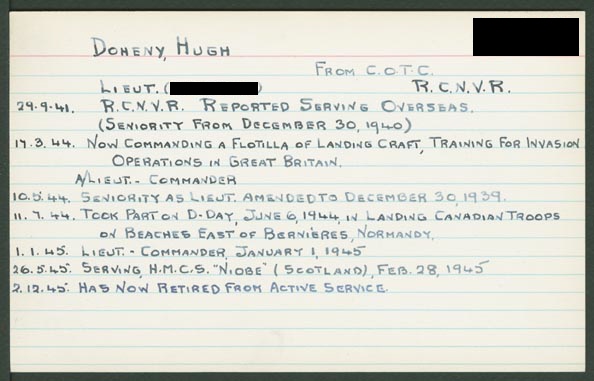 DOHENY, HUGH
FROM C.O.T.C.
LIEUT. ( ) R.C.N.V.R.
29.9.41. R.C.N.V.R. REPORTED SERVING OVERSEAS.
(SENIORITY FROM DECEMBER 30, 1940)
17.3.44. NOW COMMANDING A FLOTILLA OF LANDING CRAFT, TRAINING FOR INVASION
OPERATIONS IN GREAT BRITAIN.
A/LIEUT.- COMMANDER
10.5.44. SENIORITY AS LIEUT. AMENDED TO DECEMBER 30, 1939.
11.7.44. TOOK PART ON D-DAY, JUNE 6, 1944, IN LANDING CANADIAN TROOPS
ON BEACHES EAST OF BERNIÈRES, NORMANDY.
1.1.45. LIEUT.- COMMANDER, JANUARY 1, 1945
26.5.45. SERVING, H.M.C.S. "NIOBE" (SCOTLAND), FEB. 28, 1945
2.12.45. HAS NOW RETIRED FROM ACTIVE SERVICE.